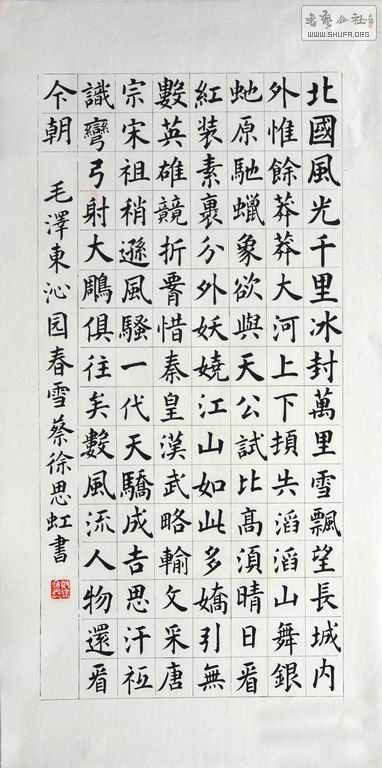 北國風光千里冰封萬里雪飄望長城内
外惟餘莽莽大河上下頓失滔滔山舞銀
虵原馳蠟象欲與天公試比髙須晴日看
紅装素裹分外妖嬈江山如此多嬌引無
數英雄競折腰惜秦皇漢武略輸文采唐
宗宋祖稍遜風騷一代天驕成吉思汗衹
識彎弓射大鵰俱往矣數風流人物還看
今朝 毛澤東沁园春雪蔡徐思虹書
書藝公社
WWW.SHUFA.ORG